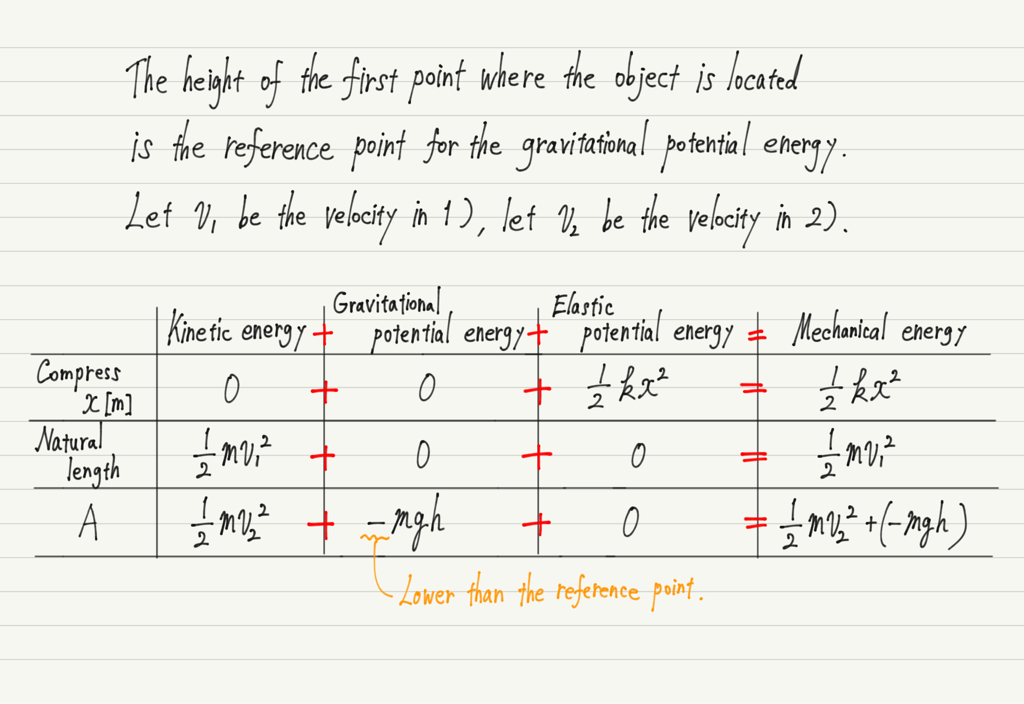 The height of the first point where the object is located
is the reference point for the gravitational potential energy.
Let v₁ be the velocity in 1), let v₂ be the velocity in 2).
Kinetic energy + Gravitational potential energy + Elastic potential energy = Mechanical energy
Compress x [m] 0 + 0 + 1/2 kx² = 1/2 kx²
Natural length 1/2 mv₁² + 0 + 0 = 1/2 mv₁²
A 1/2 mv₂² + -mgh + 0 = 1/2 mv₂² + (-mgh)
Lower than the reference point.